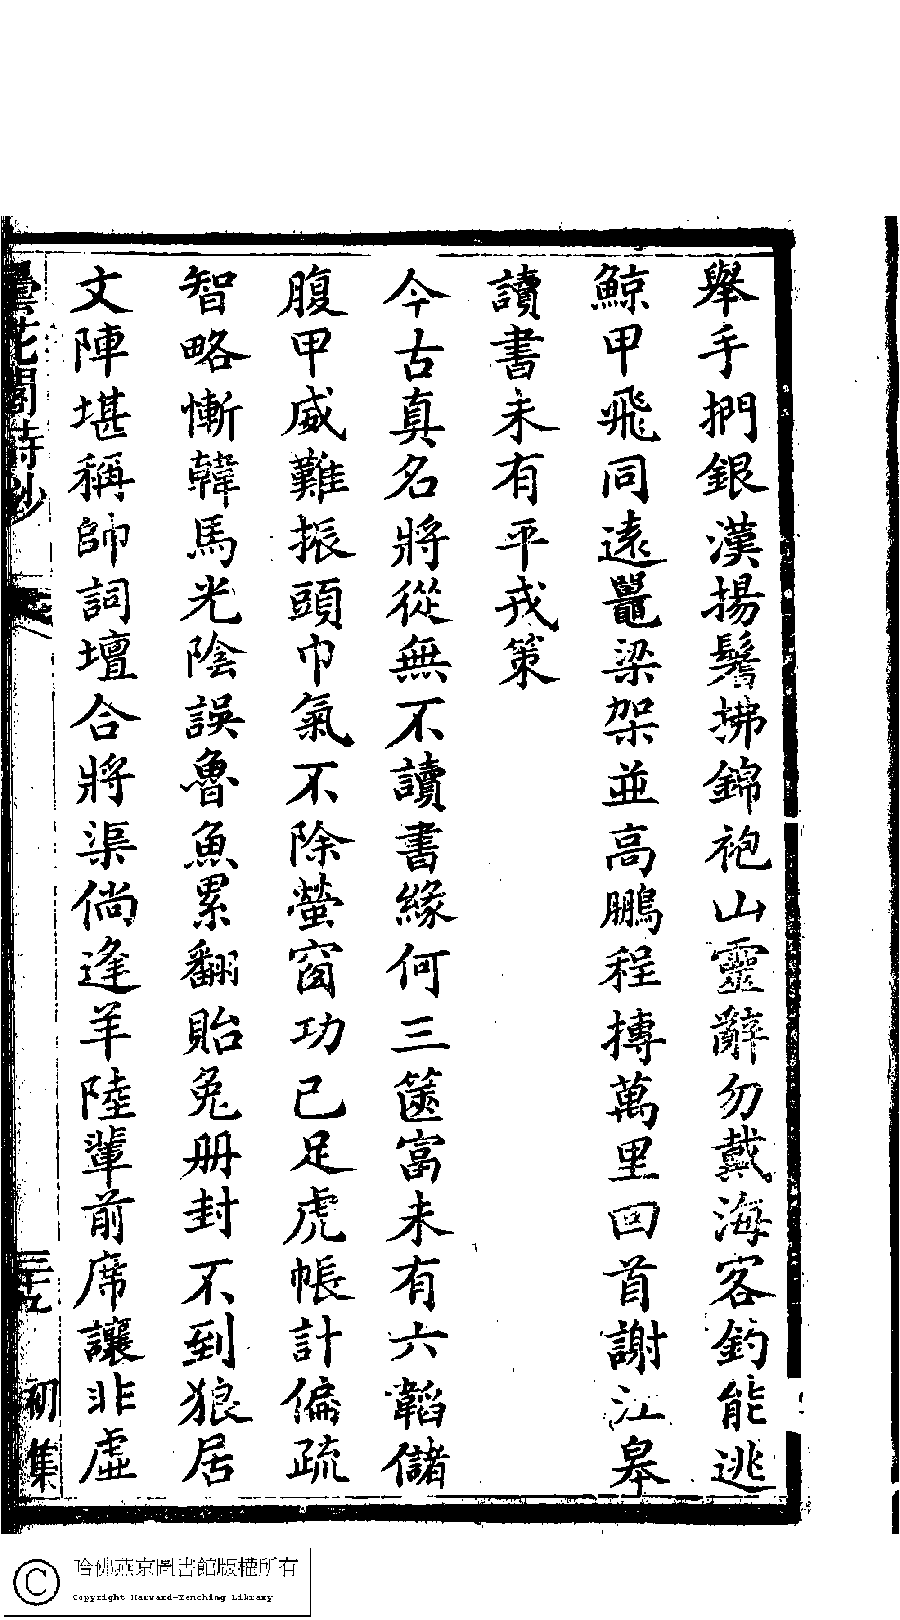 舉手捫銀漢揚鬐拂錦袍山靈辭勿戴海客釣能逃
鯨甲飛同遠鼍梁架並高鵬程摶萬里回首謝江皋
讀書未有平戎策
今古真名將從無不讀書緣何三篋富未有六韜儲
腹甲威難振頭巾氣不除螢窗功已足虎帳計偏疏
智略慚韓馬光陰誤魯魚累翻貽兔册封不到狼居
文陣堪稱帥詞壇合將渠倘逢羊陸輩前席讓非虛
曇花閣詩鈔
初集
哈佛燕京圖書館版權所有
Copyright Harvard-Yenching Library